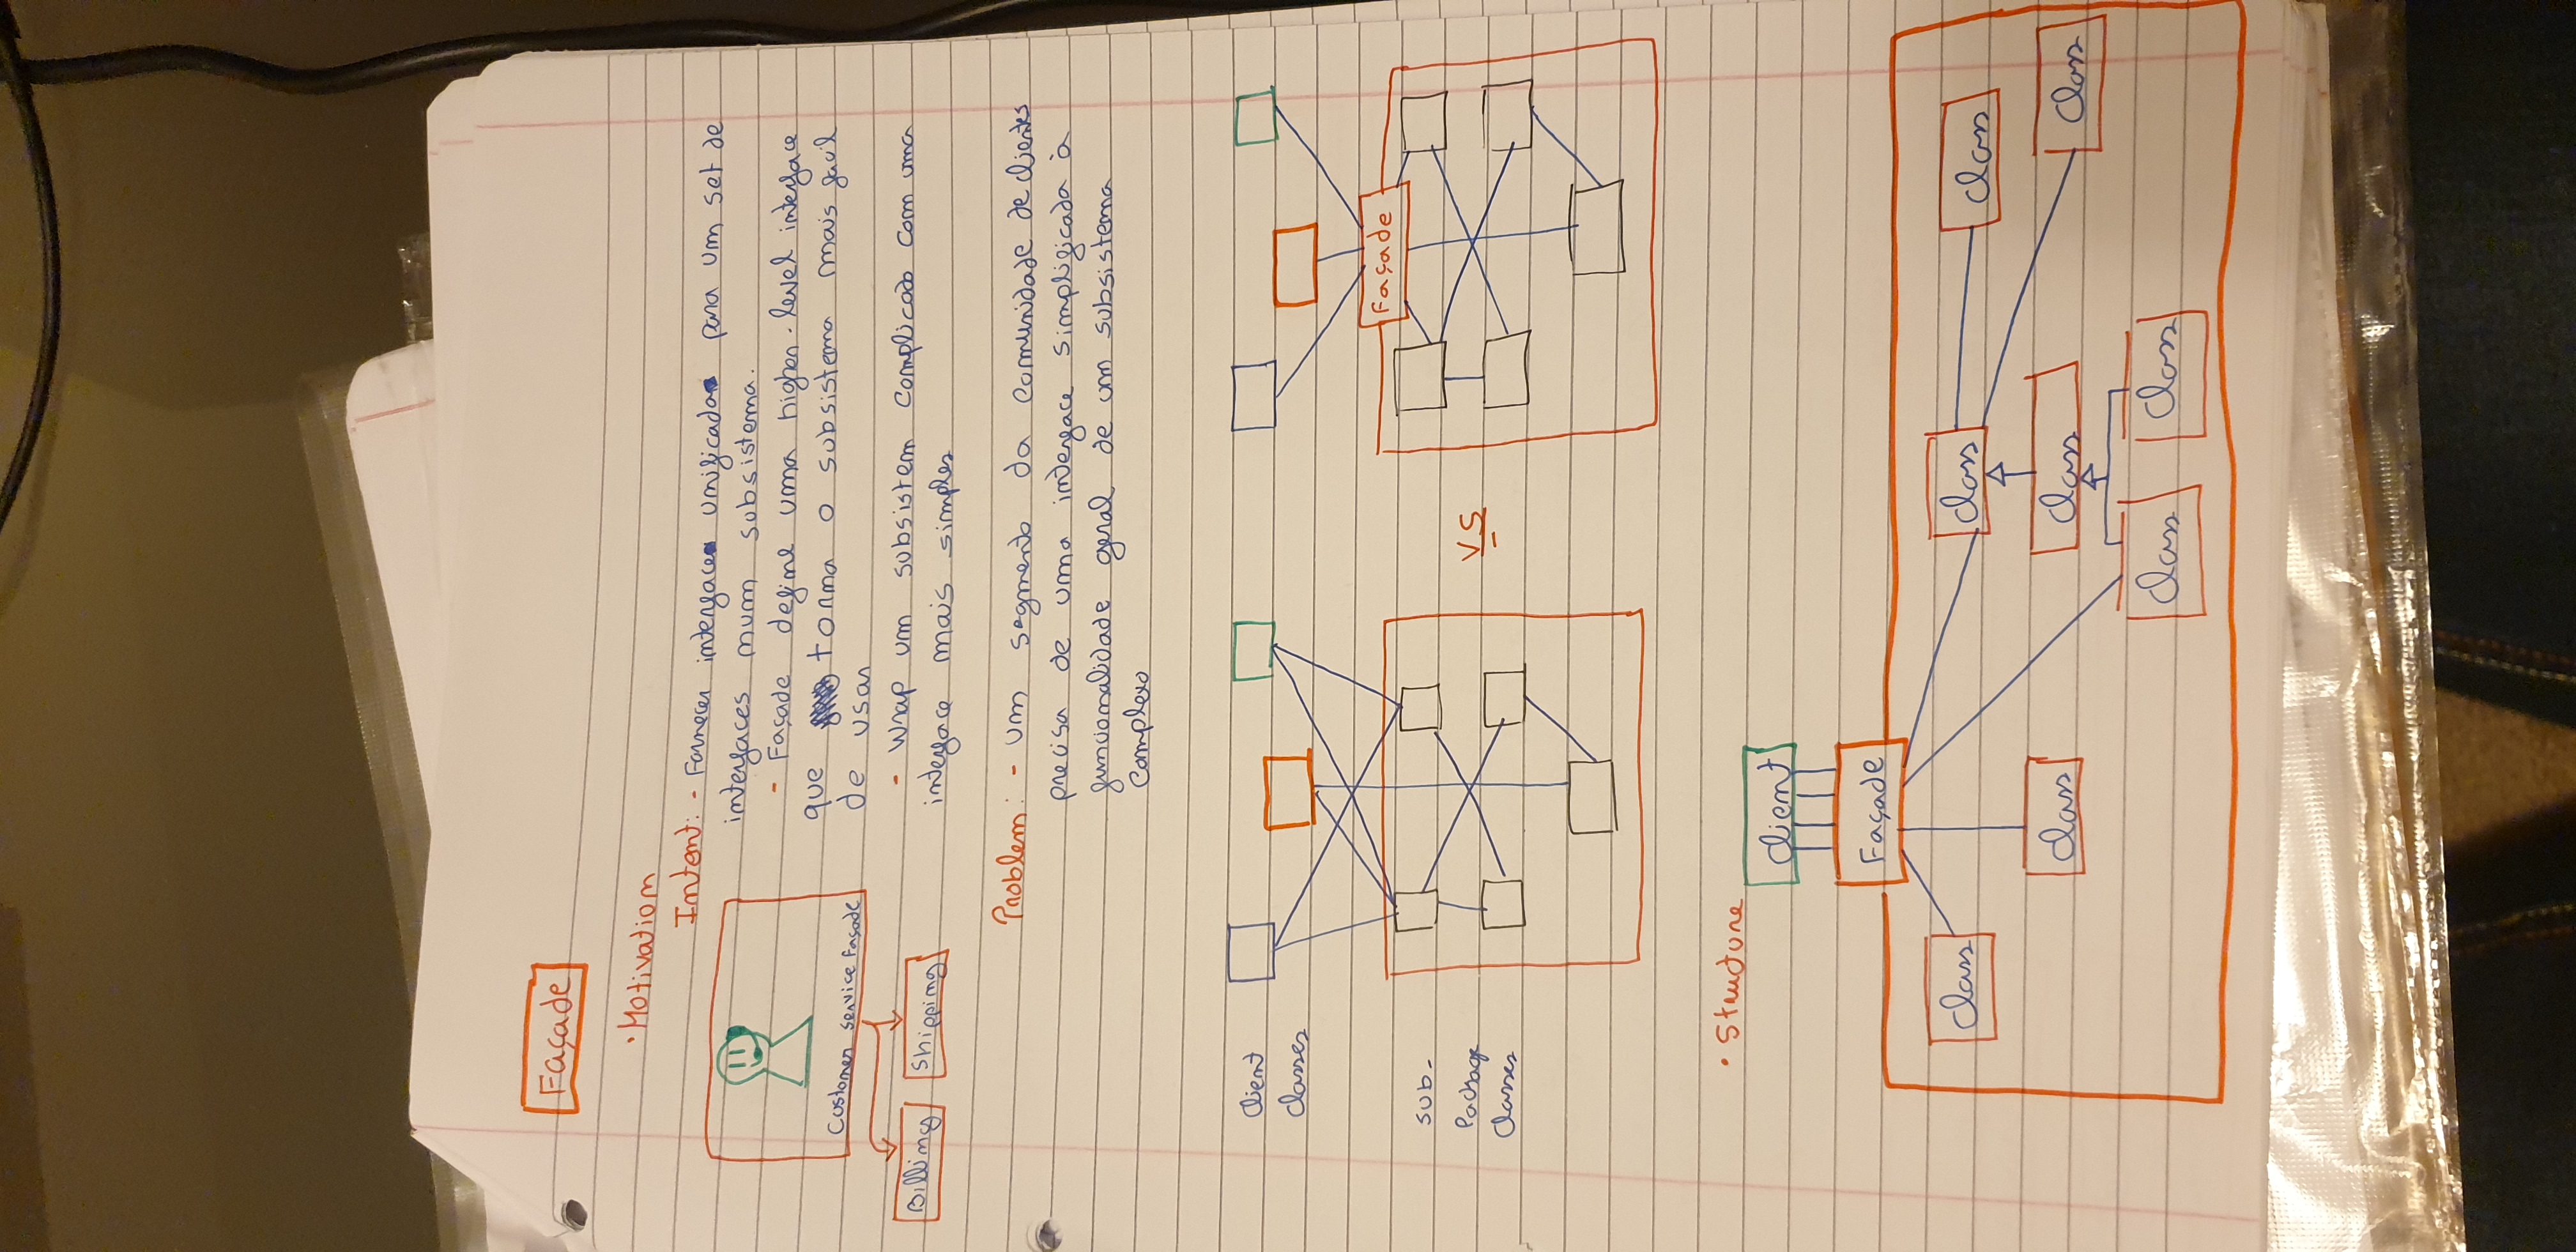 Façade
• Motivation
Intent: - Fornecer interface unificada para um set de
interfaces num subsistema.
- Façade define uma higher-level interface
que torna o subsistema mais facil
de usar
- Wrap um subsistem complicado com uma
interface mais simples
Customer service Façade
Billing Shipping
Problem: - Um segmento da comunidade de clientes
precisa de uma interface simplificada à
funcionalidade geral de um subsistema
complexo
Client
Classes
Façade
Sub-
Package
Classes
VS
• Structure
Client
Façade
Class Class Class
Class Class Class
Class Class